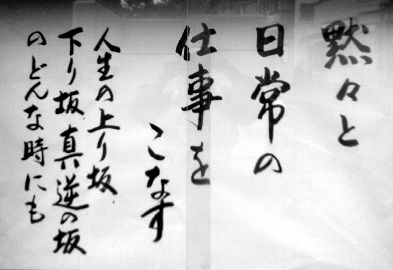 黙々と
日常の
仕事を
こなす
人生の上り坂
下り坂真逆の坂
のどんな時にも